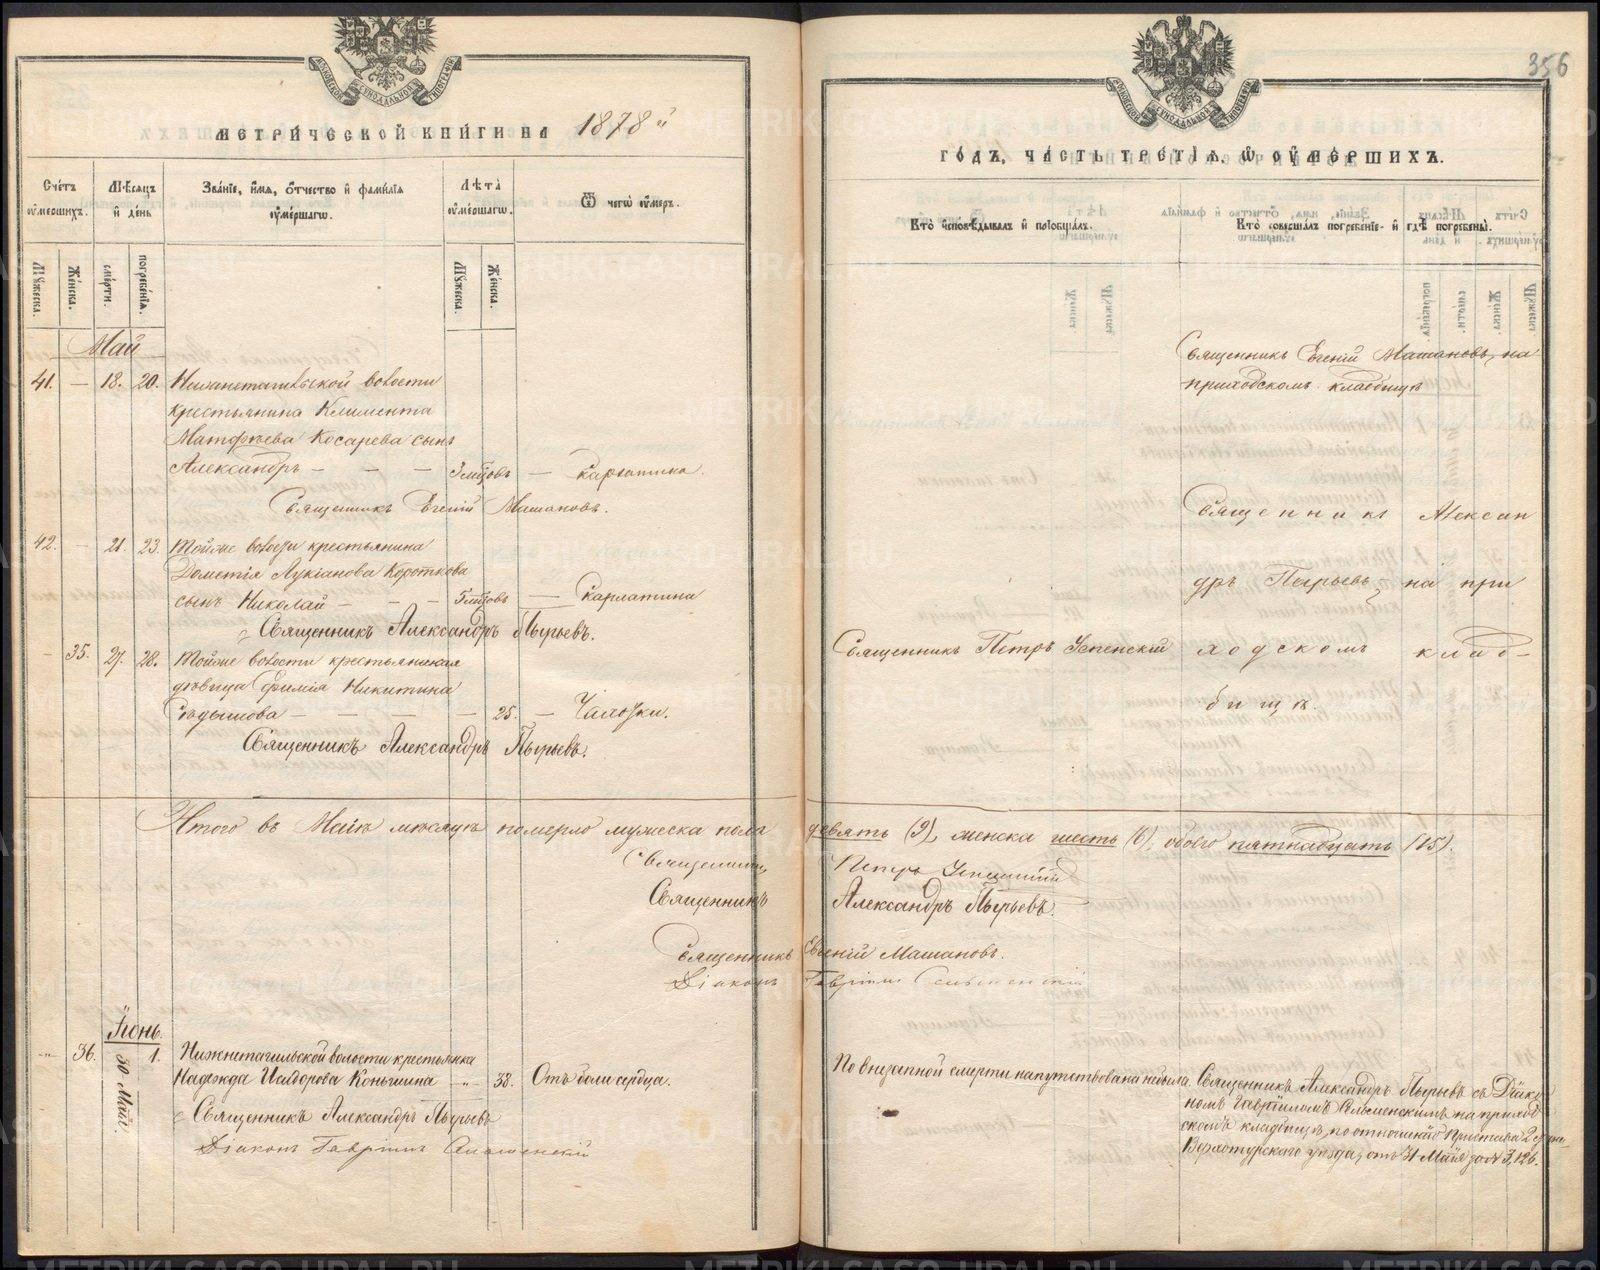 МЕТРИЧЕСКОЙ КНИГИ НА 1878й
Счетъ умершихъ.
Мѣсяцъ и день
Званіе, имя, отчество и фамилія умершагѡ.
Лѣта умершагѡ.
Ѿ чегѡ умеръ.
Мужеска.
Женска.
смерти.
погребенія.
Мужеска.
Женска.
Май
41. — 18. 20. Нижнетагильской волости
крестьянина Климента
Матфѣева Косарева сынъ
Александръ — — — 3 мѣсяцовъ — скарлатина.
Священникъ Евгеній Машановъ.
42. — 21. 23. Тойже волости крестьянина
Дометія Лукіанова Короткова
сынъ Николай — — — 5 мѣсяцовъ — Скарлатина
Священникъ Александръ Пырьевъ.
— 35. 27. 28. Тойже волости крестьянская
дѣвица Фимія Никитина
— — — — 25. — Чахотки.
Священникъ Александръ Пырьевъ.
Итого въ Маѣ мѣсяцѣ померло мужеска пола
Священникъ
Священникъ
Священникъ
Діаконъ
Іюнь.
„ 36. 30 Мая. 1. Нижнетагильской волости крестьянка
Надежда Исидорова Коньшина — „ — 38. Отъ боли сердца.
Священникъ Александръ Пырьевъ
Діаконъ Гавріилъ
356
ГОДЪ, ЧАСТЬ ТРЕТІЯ, Ѡ УМЕРШИХЪ.
Кто исповѣдывалъ и пріобщалъ.
Кто совершалъ погребеніе и гдѣ погребены.
Священникъ Евгеній Машановъ, на
приходскомъ кладбищѣ
Священникъ Алексан
дръ Пырьевъ на при
Священникъ Петръ Успенскій
ходскомъ клад-
бищѣ.
девять (9), женска шесть (6), обоего пятнадцать (15).
Петръ Успенскій
Александръ Пырьевъ.
Евгеній Машановъ.
Гавріилъ
По внезапной смерти напутствована небыла.
Священникъ Александръ Пырьевъ съ Діако
номъ Гавріиломъ на приход
скомъ кладбищѣ, по отношенію Пристава 2 стана
Верхотурскаго уѣзда, отъ 31 Мая за № 3,126.